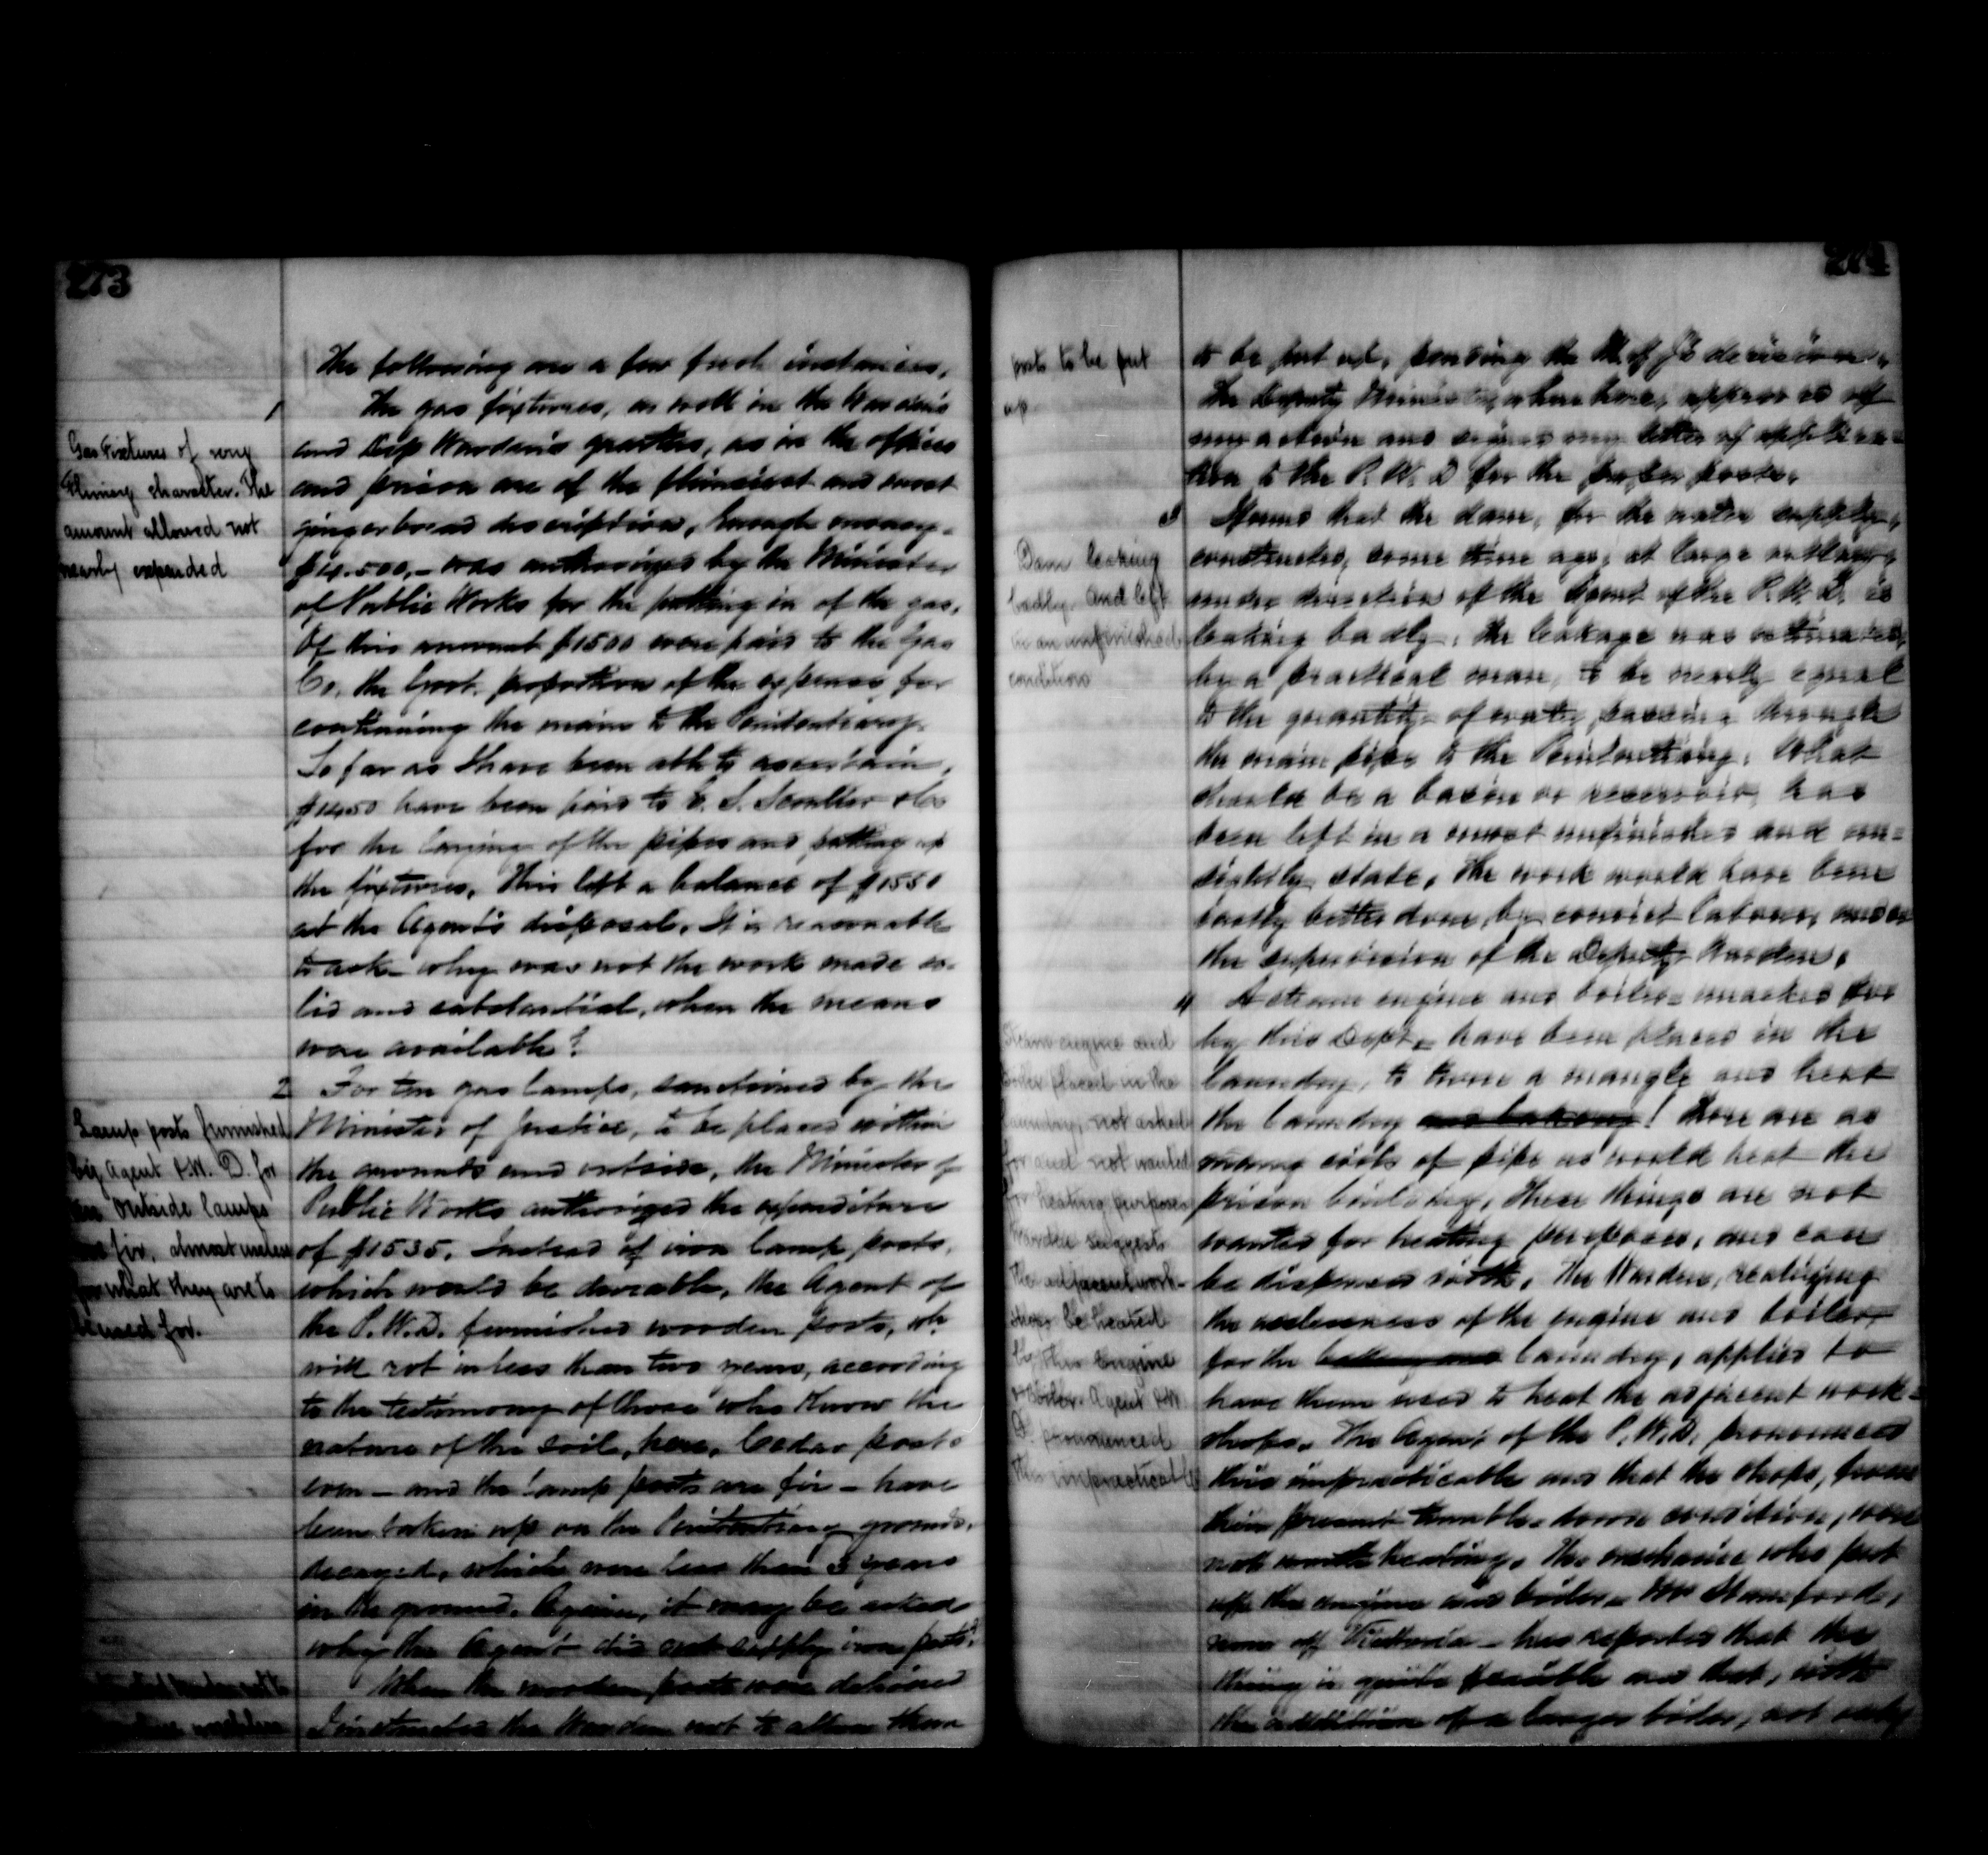 273
The following are a few fresh instances.
1 The gas fixtures, as well in the Warden's
and Dep Warden's quarters, as in the offices
and prison are of the flimsiest and most
gingerbread description, though money -
$4.500, - was authorized by the Minister
of Public Works for the putting in of the gas.
Of this amount $1500 were paid to the Gas
Co. the Govt. proportion of the expense for
continuing the main to the Penitentiary.
So far as I have been able to ascertain,
$1450 have been paid to
for the laying of the pipes and putting up
the fixtures. This left a balance of $1550
at the Agent's disposal. It is reasonable
to ask - why was not the work made so-
lid and substantial, when the means
were available?
Gas Fixtures of very
flimsy character. The
amount allowed not
nearly expended
2 For ten gas lamps, sanctioned by the
Minister of Justice, to be placed within
the grounds and outside, the Minister of
Public Works authorized the expenditure
of $1535. Instead of iron lamp posts,
which would be durable, the Agent of
the P.W.D. furnished wooden posts, wh.
will rot in less than two years, according
to the testimony of those who know the
nature of the soil, here. Cedar posts
even - and the lamp posts are fir - have
been taken up on the Penitentiary grounds,
decayed, which were less than 3 years
in the ground. Again, it may be asked
why the Agent did not supply iron posts?
When the wooden posts were delivered
I instructed the Warden not to allow them
Lamp posts furnished
by Agent P.W.D. for
outside lamps
are fir, almost useless
for what they are to
be used for.
274
to be put up, pending the M. of J's decision.
The Deputy Minister, when here, approved of
my action and signed my letter of applica-
tion to the P.W.D for the proper posts.
posts to be put
up
3 Seems that the dam, for the water supply,
constructed, some time ago, at large outlay,
under direction of the Agent of the P.W.D. is
leaking badly. The leakage was estimated,
by a practical man, to be nearly equal
to the quantity of water passing through
the main pipe to the Penitentiary. What
should be a basin or reservoir, has
been left in a most unfinished and un-
sightly state. The work would have been
vastly better done, by convict labour, under
the supervision of the Deputy Warden.
Dam leaking
badly and left
in an unfinished
condition
4 A steam engine and boiler - unasked for
by this Dept - have been placed in the
laundry, to turn a mangle and heat
the laundry and bakery! There are as
many coils of pipe as would heat the
prison building. These things are not
wanted for heating purposes, and can
be dispensed with. The Warden, realizing
the uselessness of the engine and boiler,
for the bakery and laundry, applied to
have them used to heat the adjacent work-
shops. The Agent of the P.W.D. pronounced
this impracticable and that the shops, from
their present tumble-down condition, were
not worth heating. The mechanic who put
up the engine and boiler - Mr
of Victoria - has reported that the
thing is quite feasible and that, with
the addition of a larger boiler, not only
Steam engine and
boiler placed in the
laundry, not asked
for and not wanted
for heating purposes
Warden suggests
the adjacent work-
shops be heated
by this Engine
& boiler. Agent P.W.
D. pronounced
this impracticable